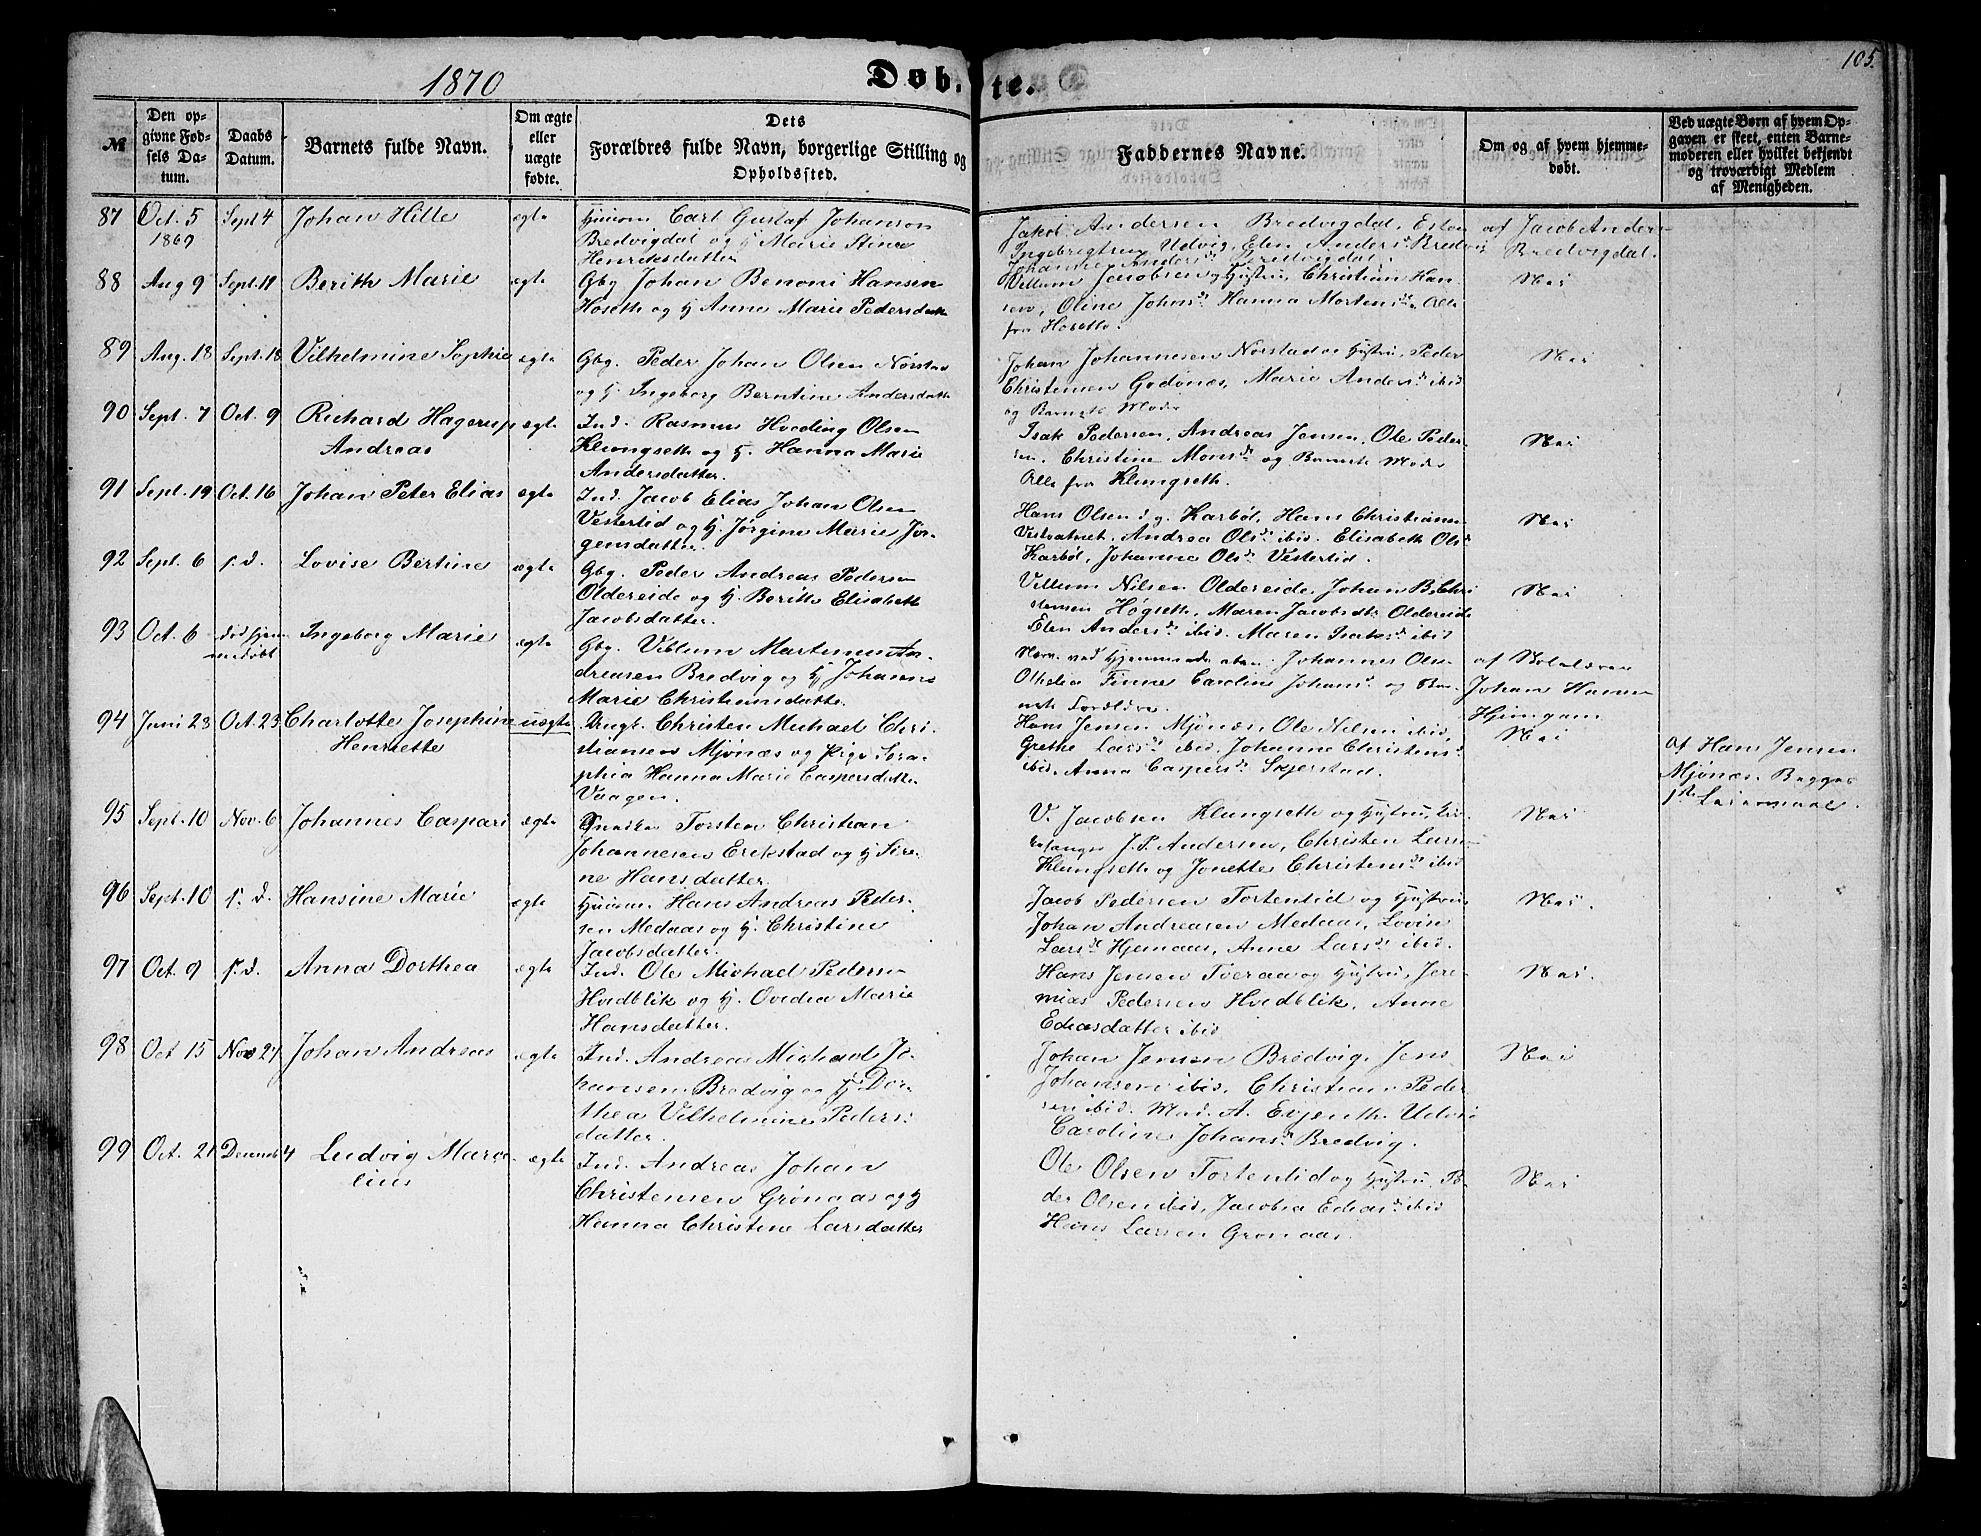 1870
Døbte.
105.
№
Den opgivne Fødsels Datum.
Daabs Datum.
Barnets fulde Navn.
Om ægte eller uægte fødte.
Dets Forældres fulde Navn, borgerlige Stilling og Opholdssted.
Faddernes Navne.
Om og af hvem hjemmedøbt.
Ved uægte Børn af hvem Opgaven er skeet, enten Barnemoderen eller hvilket bekjendt og troværdigt Medlem af Menigheden.
87 Oct. 5 1869 Sept 4 Johan Hille ægte
Huusm Carl Gustaf Johanson
Bredvigdal og H Marie Stina
Henriksdatter
Jakob Andersen Bredvigdal, Eston
Ingebrigtsen Udvig, Elen Anders d. Bredvig
Johanne Anders d. Bredvigdal.
af Jacob Anders-
Bredvigdal.
88 Aug 9 Sept. 11 Berith Marie ægte
Gbg Johan Benoni Hansen
Hoseth og H Anne Marie Pedersdatt
Villum Jacobsen og Hustru, Christian Han-
sen, Oline Johns d. Hanna Mortens d. Alle
fra Hoseth.
Nei
89 Aug. 18 Sept. 18 Vilhelmine Sophie ægte
Gbg. Peder Johan Olsen Nørstad
og H. Ingeborg Berntine Andersdatt
Johan Johannesen Norstad og Hustru, Peder
Christensen Godønes, Marie Anders d. ibid
og Barnets Moder
Nei
90 Sept. 7 Oct. 9 Richard Hagerup
Andreas
ægte
Ind. Rasmus Hveding Olsen
Klungseth og H. Hanna Marie
Andersdatter.
Isak Pedersen, Andreas Jensen, Ole Peder-
sen. Christine Mons d. og Barnets Moder
Alle fra Klungseth.
Nei
91 Sept. 19 Oct. 16 Johan Peter Elias ægte
Ind. Jacob Elias Johan Olsen
Vesterlid og H. Jørgine Marie Jør-
gensdatter.
Hans Olsen d. y. Karbøl, Hans Christiansen
Vestvatnet, Andrea Ols d. ibid. Elisabeth Ols d.
Karbøl, Johanna Ols d. Vesterlid.
Nei
92 Sept. 6 s. d. Lovise Bertine ægte
Gbg. Peder Andreas Pedersen
Oldereide og H. Berith Elisabeth
Jacobsdatter.
Villum Nilsen Oldereide, Johan B. Chri
stensen Høgseth, Maren Jacobsdt. Oldereide
Elen Anders d. ibid. Maren Isaks d. ibid
Nei
93 Oct. 6 død hjem
medøbt
Ingeborg Marie ægte
Gbg. Villum Martinus An-
dreasen Bredvig og H Johanne
Marie Christiansdatter.
Nærv. ved Hjemmedaaben: Johannes Olsen
Othelia Finne Caroline Johans d. og Bar-
nets Forældre.
af Skolelærer
Johan Hansen
Hjingam
94 Juni 23 Oct. 23 Charlotte Josephine
Henriette
uægte
Ungk. Christen Michael Chri-
stiansen Mjønæs og Pige Sera-
phia Hanna Marie Caspersdatter
Vaagen.
Hans Jensen Mjønæs, Ole Nilsen ibid,
Grethe Lars d. ibid, Johanna Christens d.
ibid. Anna Caspers d. Skjerstad.
Nei
Af Hans Jensen
Mjønæs. Begges
1ste Leiermaal.
95 Sept. 10 Nov. 6 Johannes Caspari ægte
Torsten Christian
Johannesen Erikstad og H Sire-
ne Hansdatter.
V. Jacobsen Klungseth og Hustru, Kir-
kesanger J. P. Andersen, Christen Larsen
Klungseth og Jonette Christens d. ibid
Nei
96 Sept. 10 s. d. Hansine Marie ægte
Huusm. Hans Andreas Peder-
sen Medaas og H. Christine
Jacobsdatter.
Jacob Pedersen Tortenlid og Hustru
Johan Andreasen Medaas, Lovise
Lars d. Hjemaas, Anne Lars d. ibid.
Nei.
97 Oct. 9 s. d. Anna Dorthea ægte
Ind. Ole Michael Pedersen
Hvidblik og H. Ovedia Marie
Hansdatter.
Hans Jensen Tveraa og Hustru, Jere-
mias Pedersen Hvidblik, Anne
Ediasdatter ibid
Nei.
98 Oct 15 Nov 27 Johan Andreas ægte
Ind. Andreas Michael Jo-
hansen Bredvig og H Dor-
thea Vilhelmine Peders-
datter.
Johan Jensen Bredvig, Jens
Johansen ibid. Christian Peder-
sen ibid. Mad. A. Evjenth. Udvig
Caroline Johans d. Bredvig.
Nei
99 Oct. 21 Decemb 4 Ludvig Marce-
lius
ægte
Ind. Andreas Johan
Christensen Grønaas og H
Hanna Christine Larsdatter
Ole Olsen Tortenlid og Hustru. Pe-
der Olsen ibid, Jacobia Edias d. ibid
Hans Larsen Grønaas.
Nei